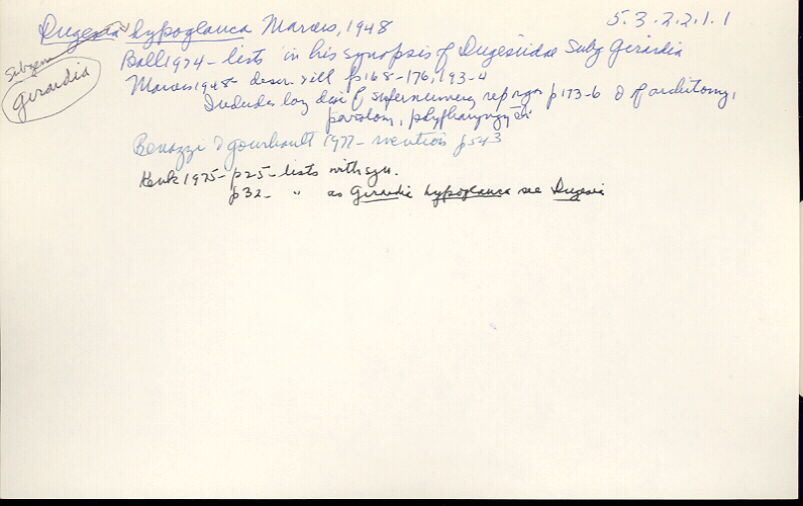 Dugesia hypoglauca Marcus, 1948
5.3.2.2.1.1
Subgen
Girardia
Ball 1974 - lists in his synopsis of Dugesiidae Subg Girardia
Marcus 1948 - descr. & ill p168-176, 193-4
Includes long disc of supernumerary rep organs p173-6 & of architomy,
paratomy, polypharyngy etc.
Benazzi & Gourbault 1977 - mention p543
Kenk 1975 - p25 - lists with syn.
p32 - " as Girardia hypoglauca see Dugesia